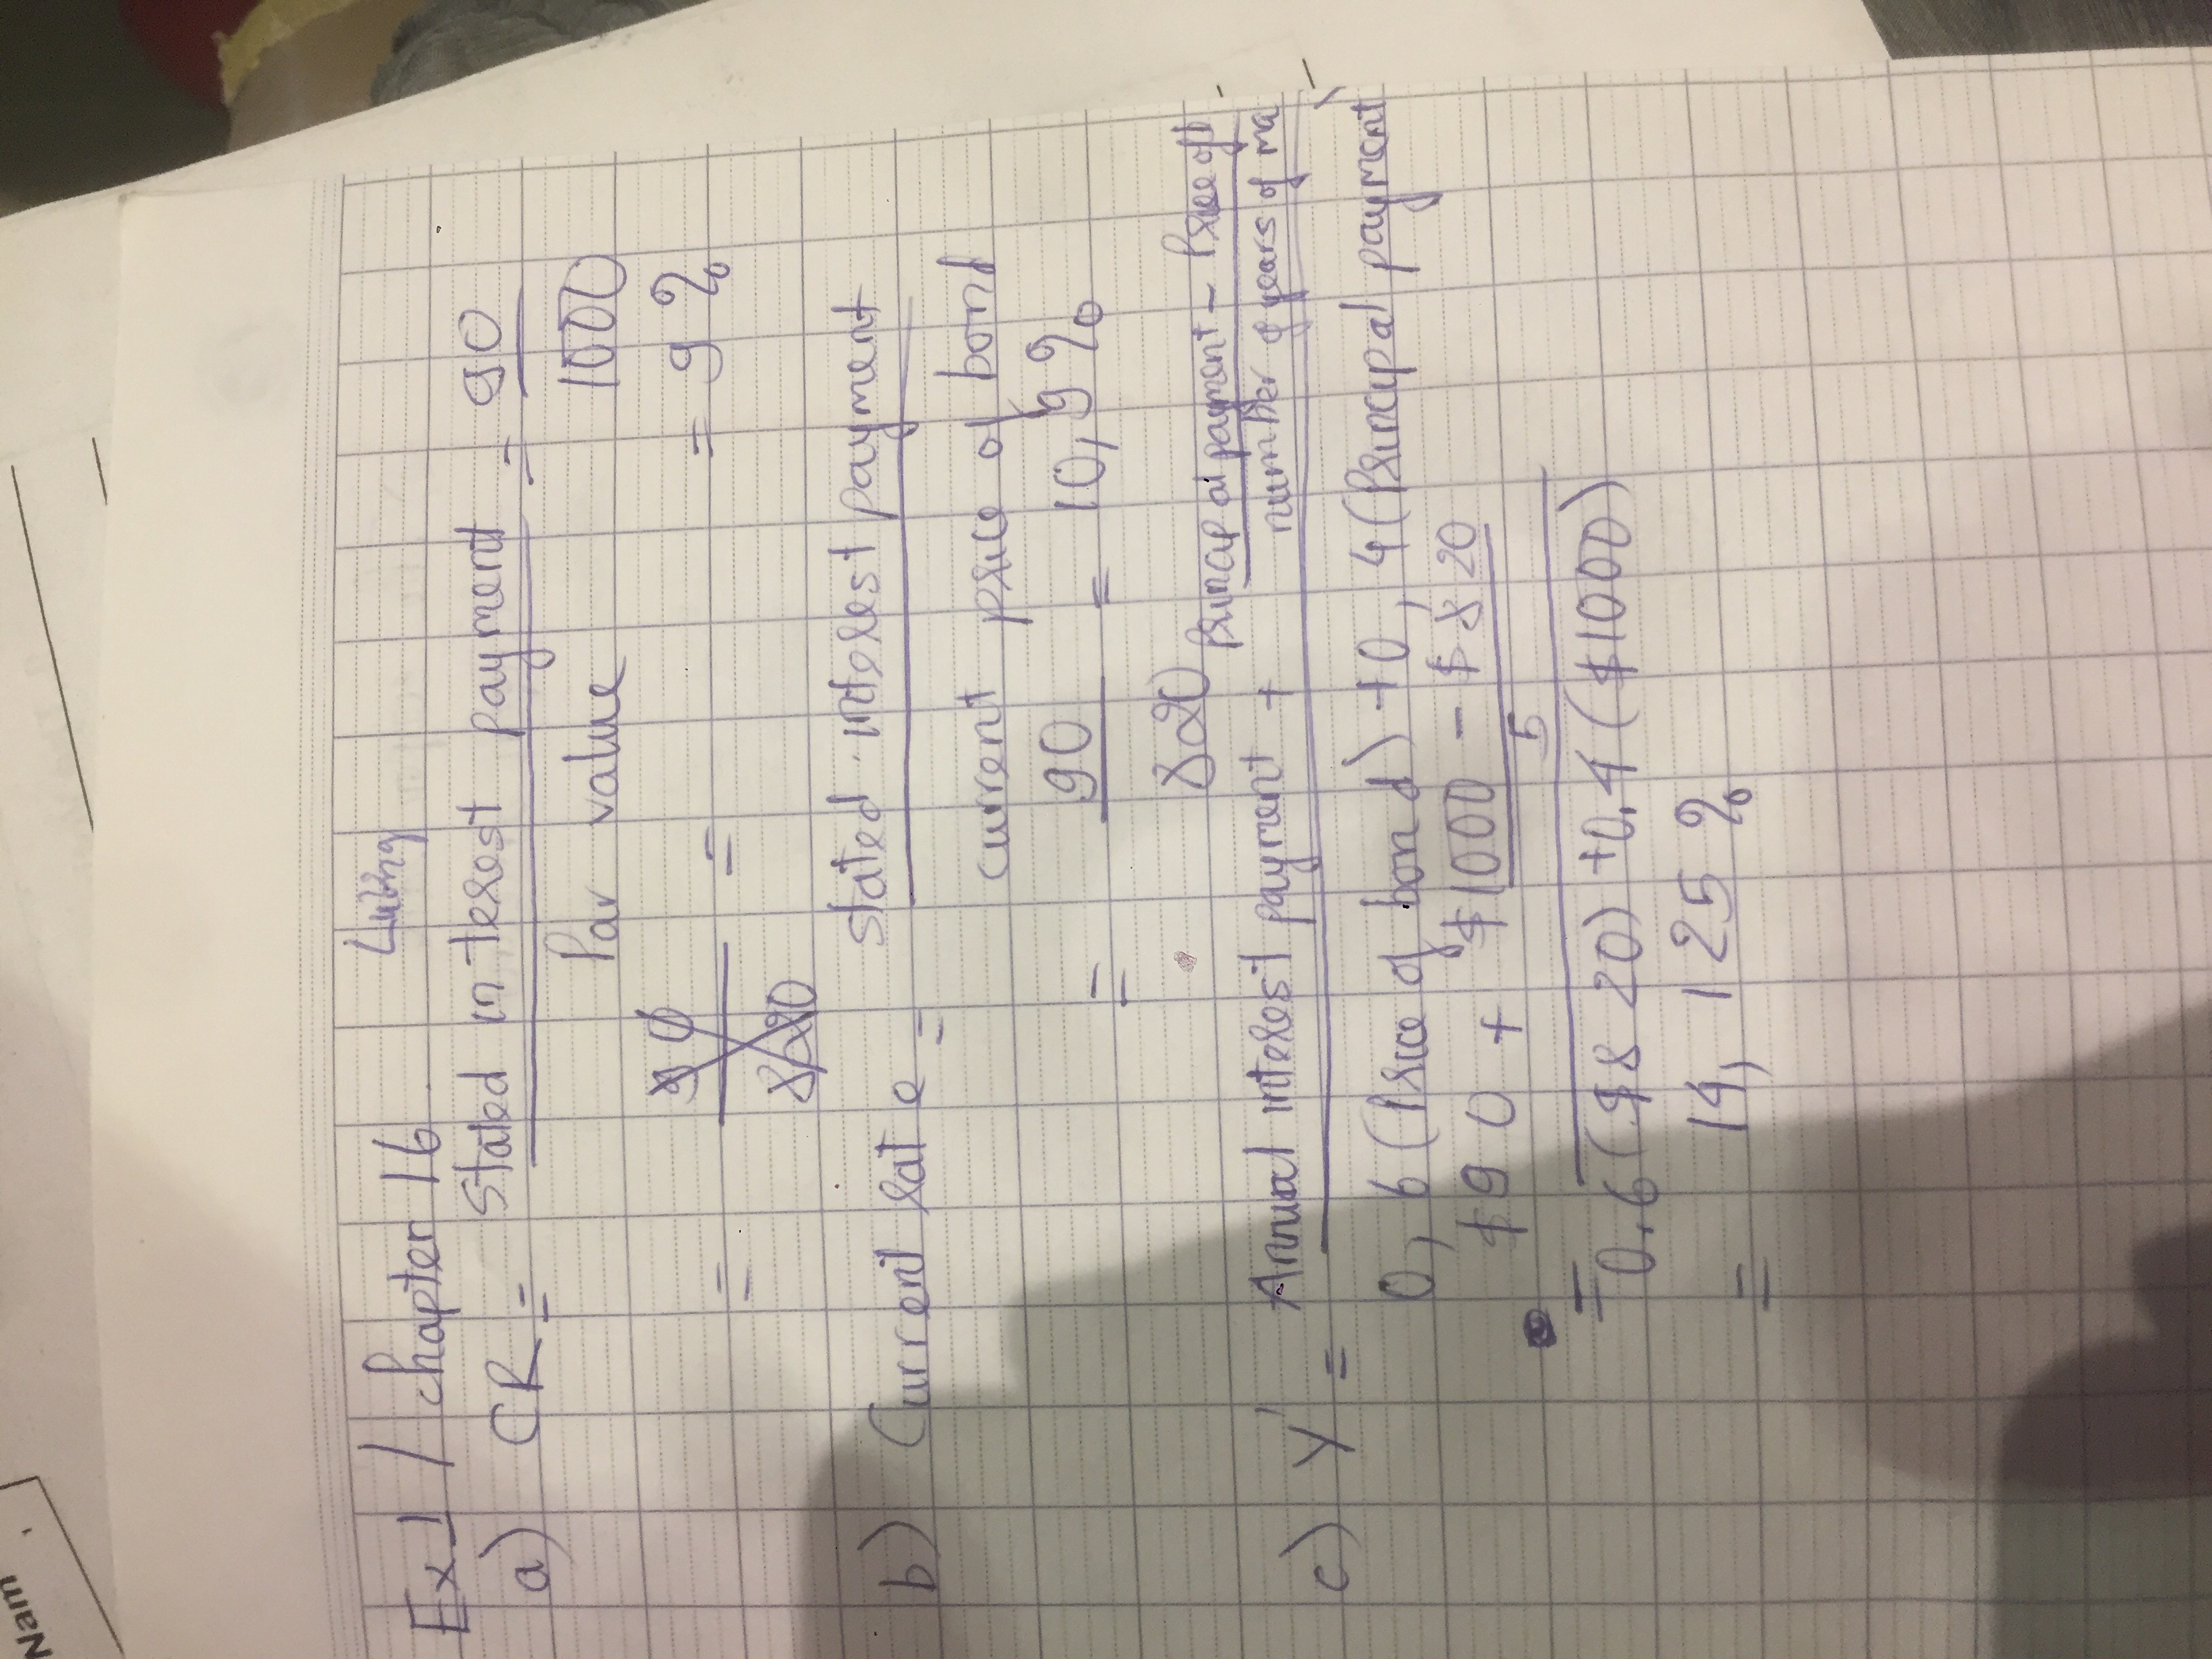 Ex 1 / chapter 16
a) CR = Stated interest payment = 90
Par value 1000
= 90 = = 9 %
820
b) Current rate = stated interest payment
current price of bond
= 90 = 10,9 %
820
c) Y' = Annual interest payment + Principal payment - Price of b
number of years of ma
0,6 (Price of bond) + 0,4 (Principal payment
$90 + $1000 - $820
5
= 0.6 ($820) + 0.4 ($1000)
= 14,125 %
Nam